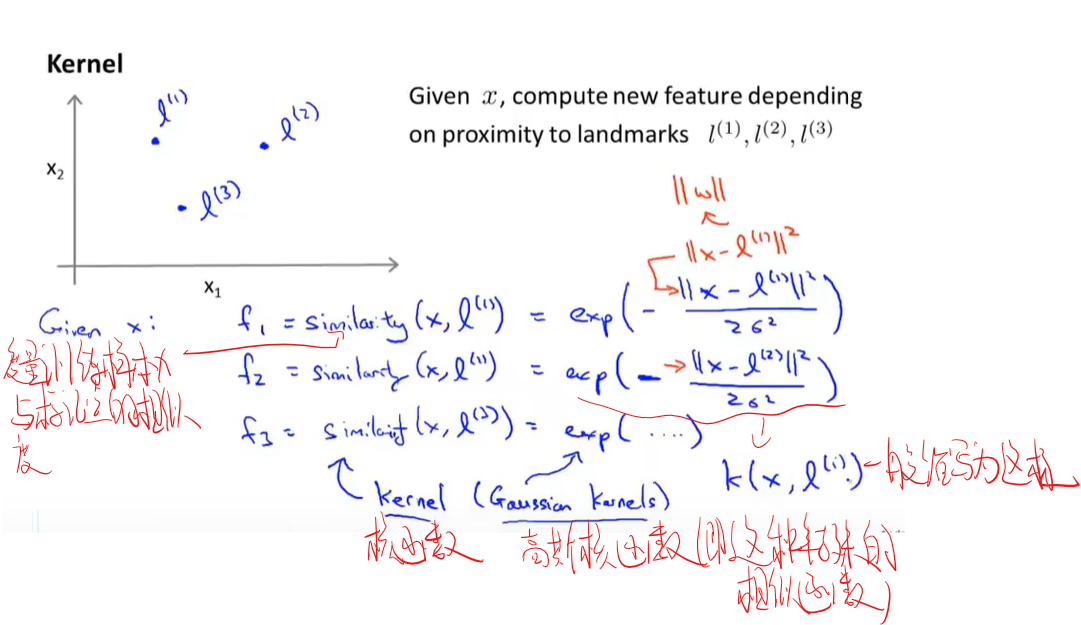 Kernel
l⁽¹⁾
l⁽²⁾
l⁽³⁾
x₂
x₁
Given x, compute new feature depending
on proximity to landmarks l⁽¹⁾, l⁽²⁾, l⁽³⁾
||w||
||x - l⁽¹⁾||²
Given x:
f₁ = similarity(x, l⁽¹⁾) = exp(- ||x - l⁽¹⁾||² / 2σ²)
f₂ = similarity(x, l⁽²⁾) = exp(- ||x - l⁽²⁾||² / 2σ²)
f₃ = similarity(x, l⁽³⁾) = exp(....)
度量训练样本x
与标记之的相似
度
k(x, l⁽ⁱ⁾) 一般港写为这样
kernel (Gaussian kernels)
核函数
高斯核函数(即这种特殊的
相似函数)